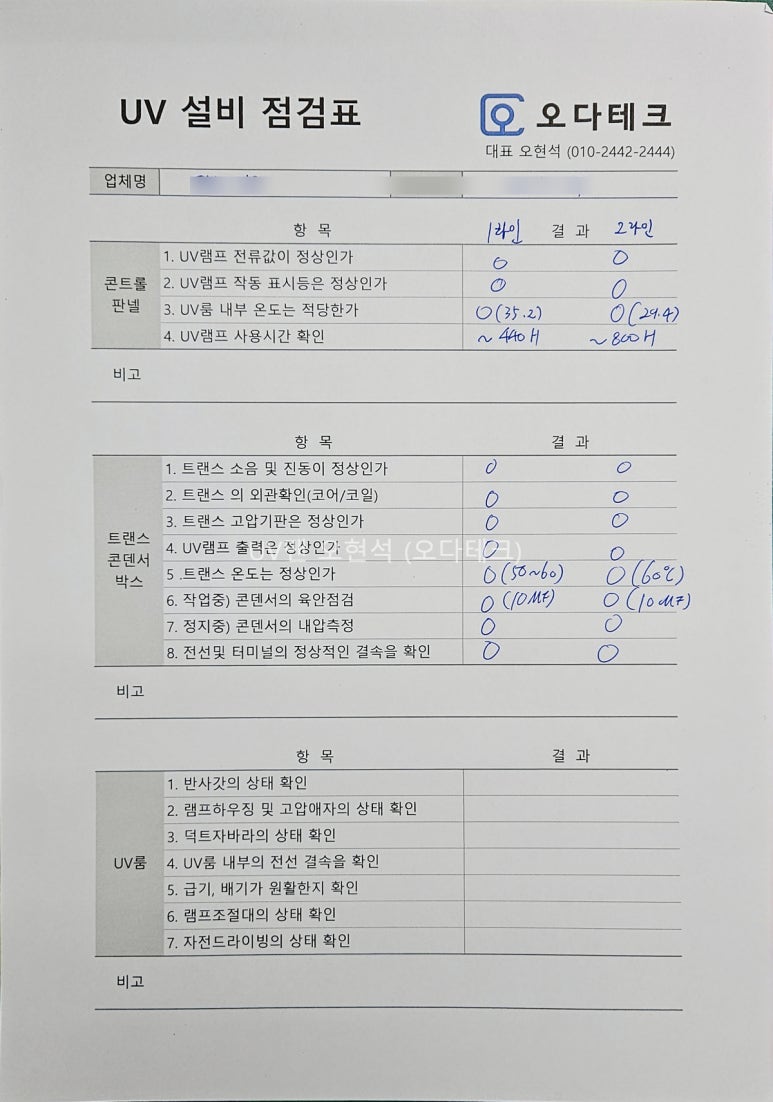 UV 설비 점검표
오다테크
대표 오현석 (010-2442-2444)
업체명
항 목 1라인 결 과 2라인
콘트롤 판넬
1. UV램프 전류값이 정상인가 O O
2. UV램프 작동 표시등은 정상인가 O O
3. UV룸 내부 온도는 적당한가 O(35.2) O(29.4)
4. UV램프 사용시간 확인 ~ 440H ~ 800H
비고
항 목 결 과
트랜스 콘덴서 박스
1. 트랜스 소음 및 진동이 정상인가 O O
2. 트랜스 의 외관확인(코어/코일) O O
3. 트랜스 고압기판은 정상인가 O O
4. UV램프 출력은 정상인가 O O
오현석 (오다테크)
5 .트랜스 온도는 정상인가 O(50~60) O(60℃)
6. 작업중) 콘덴서의 육안점검 O(10MF) O(10MF)
7. 정지중) 콘덴서의 내압측정 O O
8. 전선및 터미널의 정상적인 결속을 확인 O O
비고
항 목 결 과
UV룸
1. 반사갓의 상태 확인
2. 램프하우징 및 고압애자의 상태 확인
3. 덕트자바라의 상태 확인
4. UV룸 내부의 전선 결속을 확인
5. 급기, 배기가 원활한지 확인
6. 램프조절대의 상태 확인
7. 자전드라이빙의 상태 확인
비고